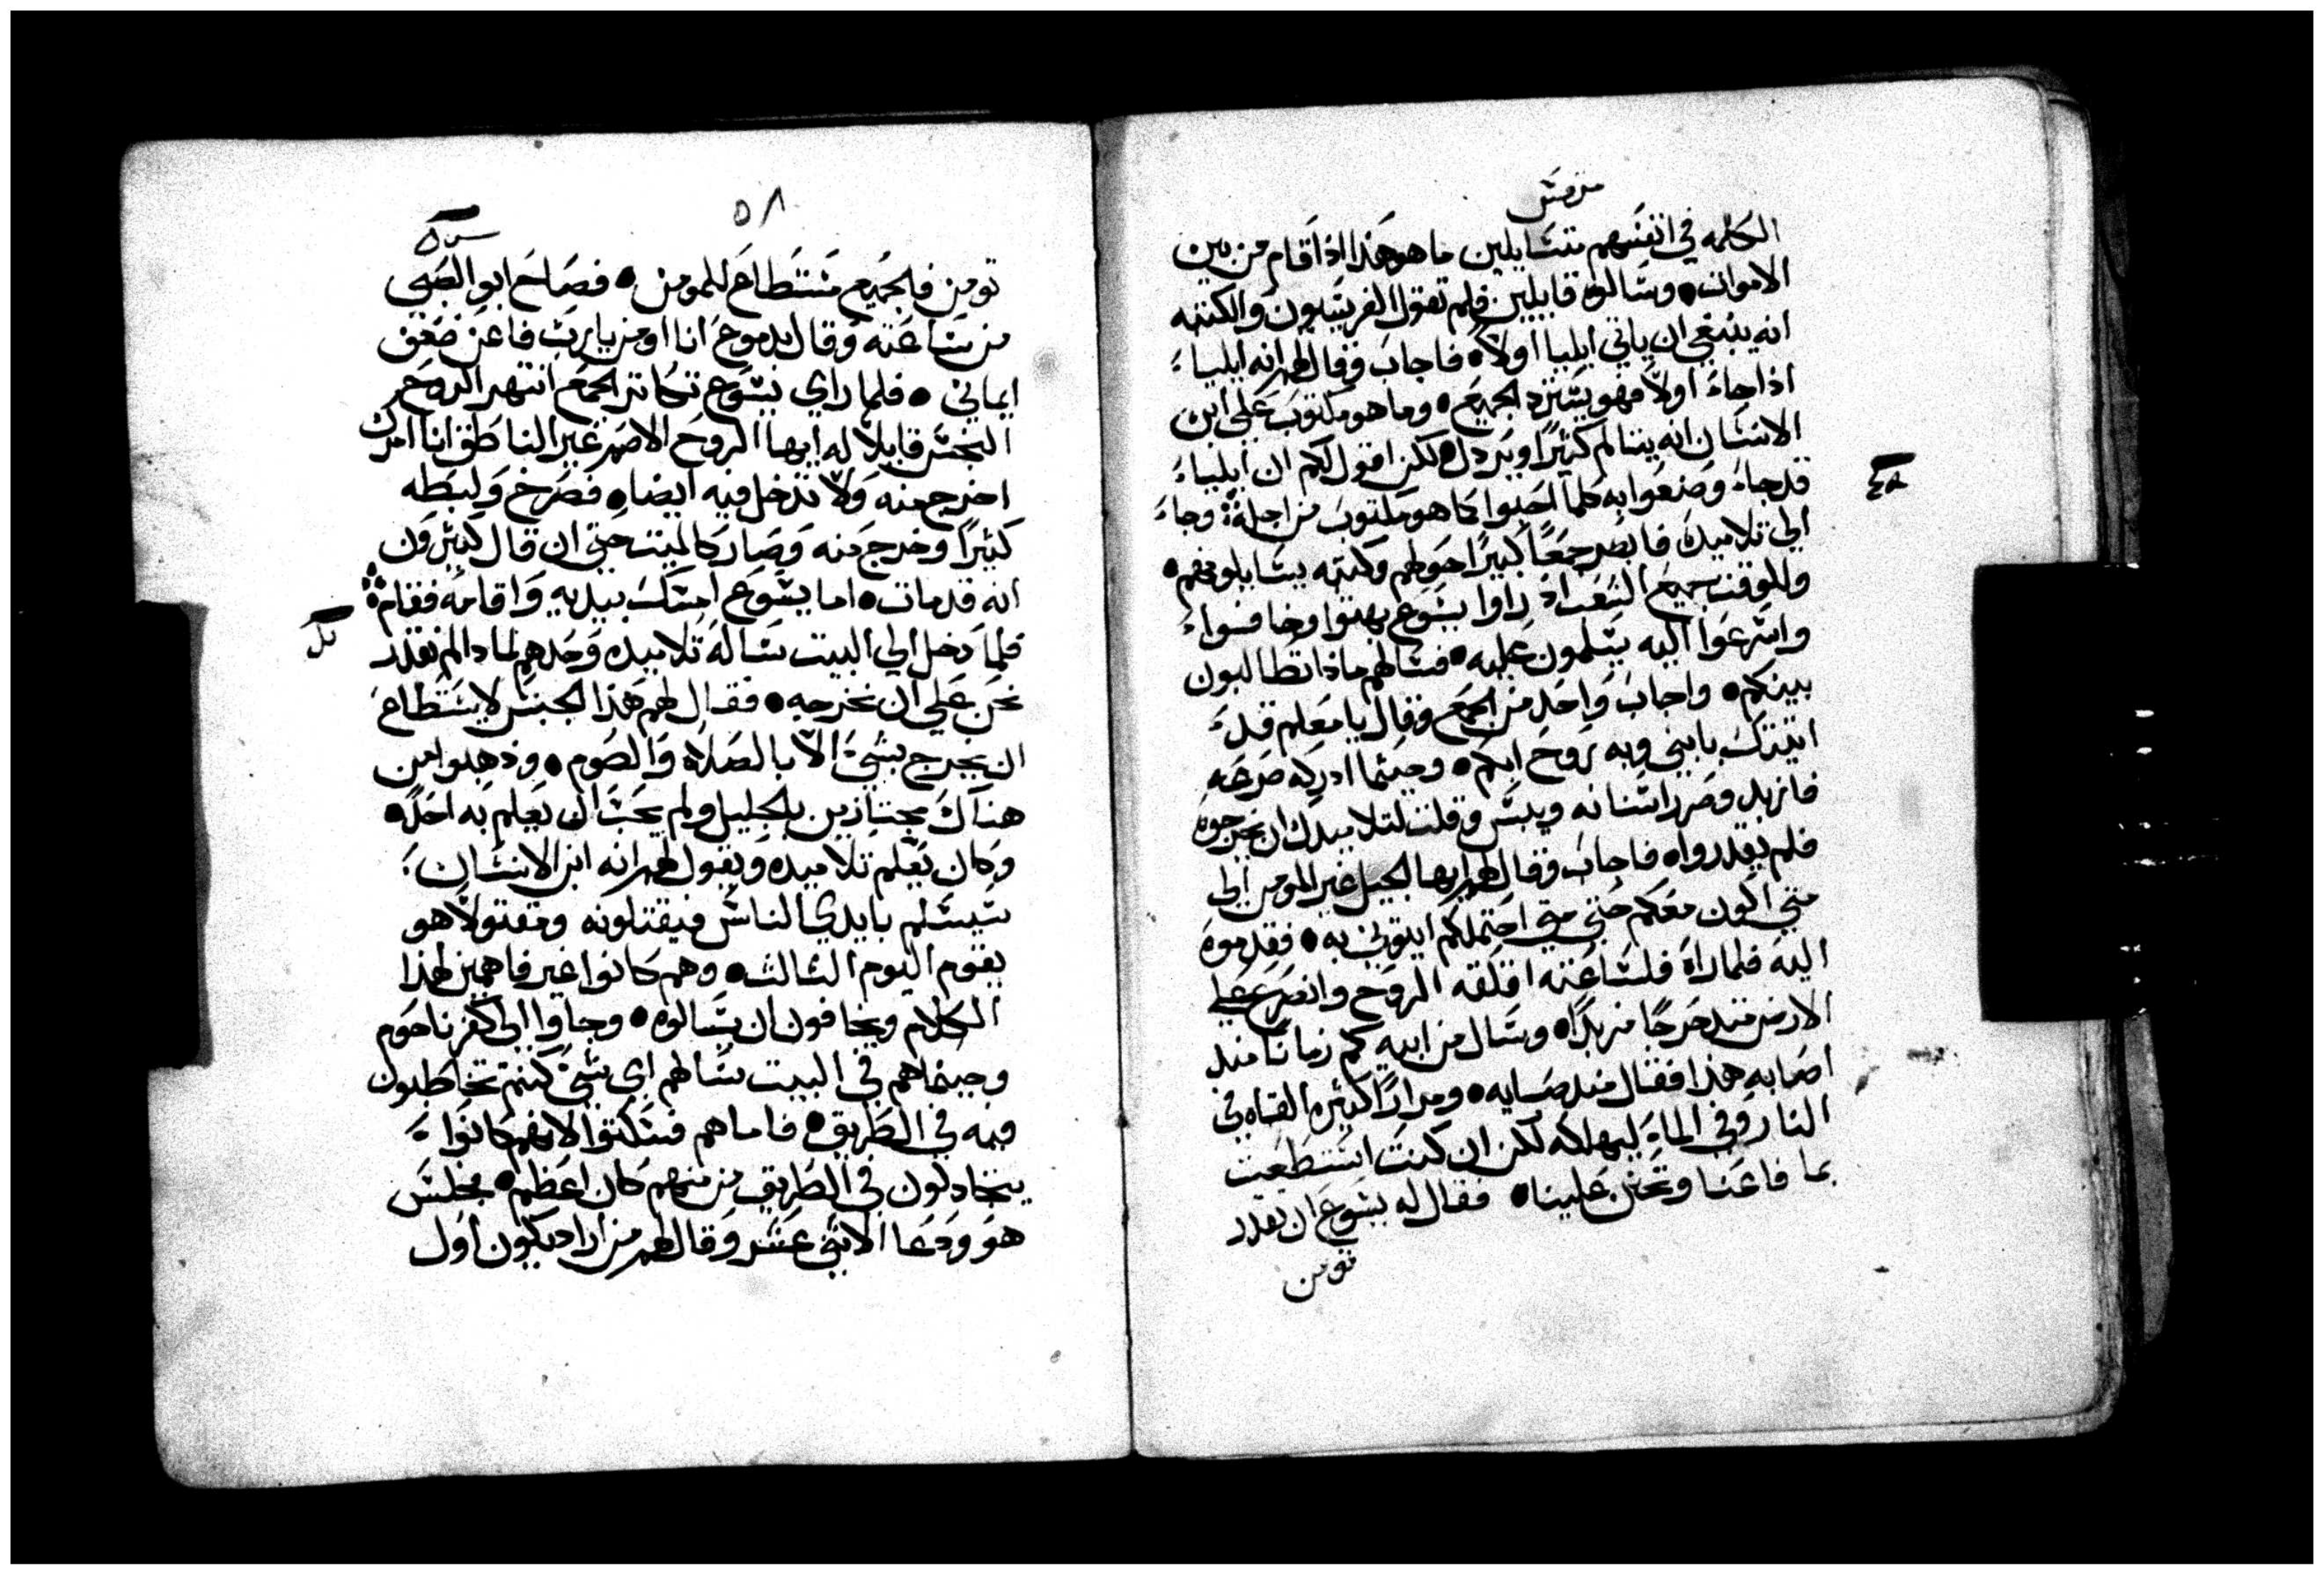 مرقس
الكلمه في انفسهم متسايلين ما هو هذا اذا قام من بين
الاموات● وسالوه قايلين فلم تقول الفريسيون والكتبه
انه ينبغي ان ياتي ايليا اولاً● فاجاب وقال لهم انه ايلياء
اذا جاء اولاً فهو يسترد الجميع● وما هو مكتوب على ابن
الانسان انه يتالم كثيرًا ويردل● لكن اقول لكم ان ايلياء
قد جاء وصنعوا به كلما احبوا كما هو مكتوب من اجله وجاء
الي تلاميده فابصر جمعًا كبيرًا حولهم وكتبه يسايلونهم●
وللوقت جميع الشعب اذ راوا يسوع بهتوا وخافواء
واسرعوا اليه يسلمون عليه● فسالهم ماذا تطالبون
بينكم● واجاب واحد من الجمع وقال يا معلم قد
اتيتك بابني وبه روح ابكم● وحيثما ادركه صرعه
فازبد وصر اسنانه ويبس وقلت لتلاميدك ان يخرجوه
فلم يقدروا● فاجاب وقال لهم ايها الجيل غير المومن الي
متي اكون معكم حتي متي احتملكم ايتوني به● فقدموه
اليه فلما راه فلساعته اقلقه الروح وانصرع علي
الارض متدحرجًا مزبدًا● وسال من ابيه كم زمانًا مند
اصابه هذا فقال مند صبايه● ومرارًا كثيره القاه في
النار وفي الماء ليهلكه لكن ان كنت استطعت
بما فاعنا وتحنن علينا● فقال له يسوع ان تقدر
تومن
٥٨
تومن فالجميع مستطاع للمومن● فصاح ابو الصبي
من ساعته وقال بدموع انا اومن يا رب فاعن ضعف
ايماني● فلما راي يسوع تكاتر الجمع انتهر الروح
النجس قايلاً له ايها الروح الاصم غير الناطق انا امرك
اخرج منه ولا تدخل فيه ايضا● فصرخ ولبطه
كثيرًا وخرج منه وصار كالميت حتي ان قال كثيرون
انه قد مات● اما يسوع امسك بيديه واقامه فقام
فلما دخل الي البيت ساله تلاميده وحدهم لمادا لم نقدر
نحن علي ان نخرجه● فقال لهم هذا الجنس لا يستطاع
ان يخرج بشيء الا بالصلاه والصوم● وذهبوا من
هناك مجتازين بالجليل ولم يحب ان يعلم به احد●
وكان يعلم تلاميده ويقول لهم انه ابن الانسان
سيسلم بايدي الناس فيقتلونه ومقتولاً هو
يقوم اليوم الثالث● وهم كانوا غير فاهمين لهذا
الكلام ويخافون ان يسالوه● وجاوا الي كفرناحوم
وحينما هم في البيت سالهم اي شيء كنتم تخاطبون
فيه في الطريق● فاما هم فسكتوا لانهم كانواء
يتجادلون في الطريق من منهم كان اعظم● فجلس
هو ودعا الاثني عشر وقال لهم من اراد يكون اول